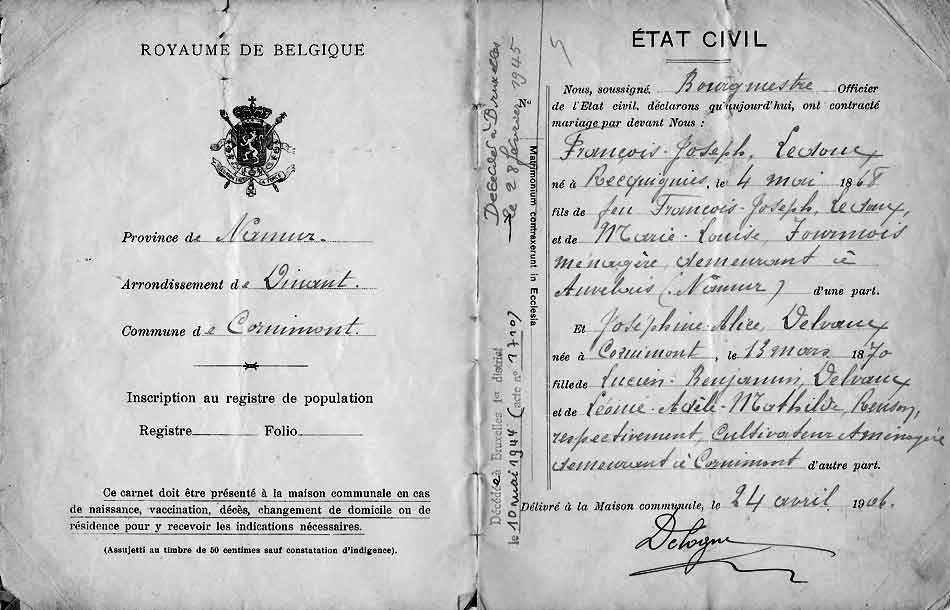 ROYAUME DE BELGIQUE
Province de Namur.
Arrondissement de Dinant.
Commune de Cornimont.
Inscription au registre de population
Registre Folio
Ce carnet doit être présenté à la maison communale en cas
de naissance, vaccination, décès, changement de domicile ou de
résidence pour y recevoir les indications nécessaires.
(Assujetti au timbre de 50 centimes sauf constatation d'indigence).
Décédé à Bruxelles
le 28 février 1945
N°
Matrimonium contraxerunt in Ecclesia
Décédée à Bruxelles 1er district
le 10 mai 1944 (acte n° 1710)
5
ÉTAT CIVIL
Nous, soussigné, Bourgmestre Officier
de l'Etat civil, déclarons qu'aujourd'hui, ont contracté
mariage par devant Nous :
François-Joseph, Ledoux
né à Recquignies, le 4 mai 1868
fils de feu François-Joseph, Ledoux,
et de Marie-Louise, Fourmois
ménagère, demeurant à
Auvelais (Namur) d'une part.
Et Joséphine-Alice, Delvaux
née à Cornimont, le 13 mars 1870
fille de Lucien-Benjamin, Delvaux
et de Léonie-Adèle-Mathilde,
respectivement, Cultivateur & ménagère
demeurant à Cornimont d'autre part.
Délivré à la Maison communale, le 24 avril 1906.
Delogne